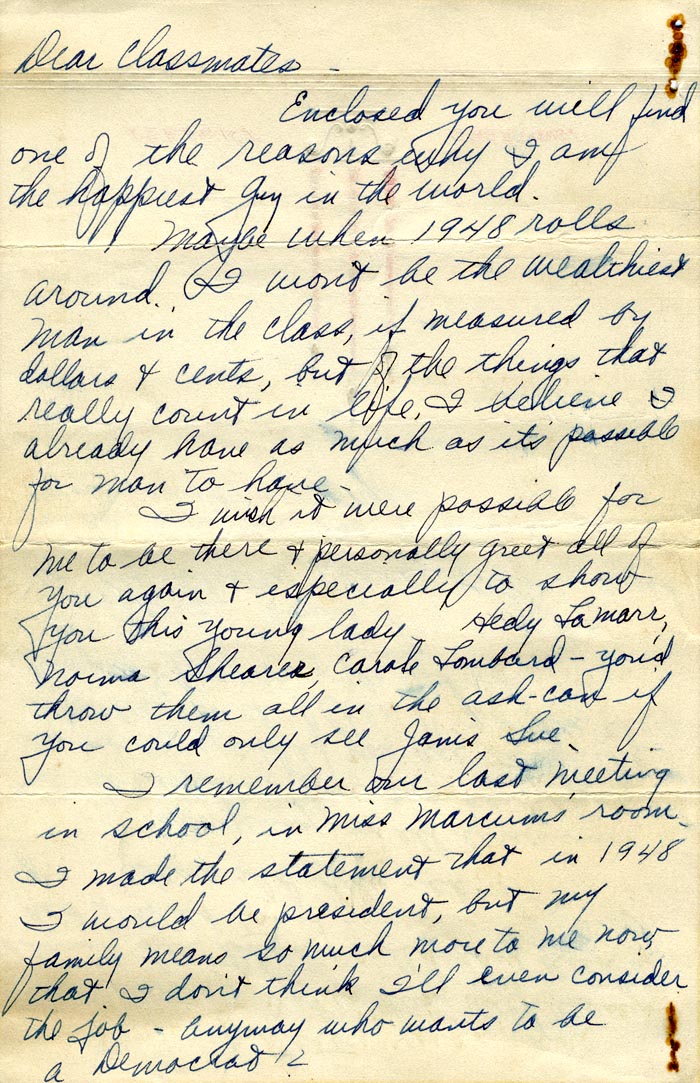 Dear Classmates -
Enclosed you will find
one of the reasons why I am
the happiest guy in the world.
Maybe when 1948 rolls
around. I wont be the wealthiest
man in the class, if measured by
dollars & cents, but of the things that
really count in life, I believe I
already have as much as it's possible
for man to have.
I wish it were possible for
me to be there & personally greet all of
you again & especially to show
you this young lady. Hedy Lamarr,
Norma Shearer, Carole Lombard - you'd
throw them all in the ash-can if
you could only see Janis Sue.
I remember our last meeting
in school, in Miss Marcum's room.
I made the statement that in 1948
I would be president, but my
family means so much more to me now,
that I don't think I'll even consider
the job - anyway who wants to be
a Democrat?